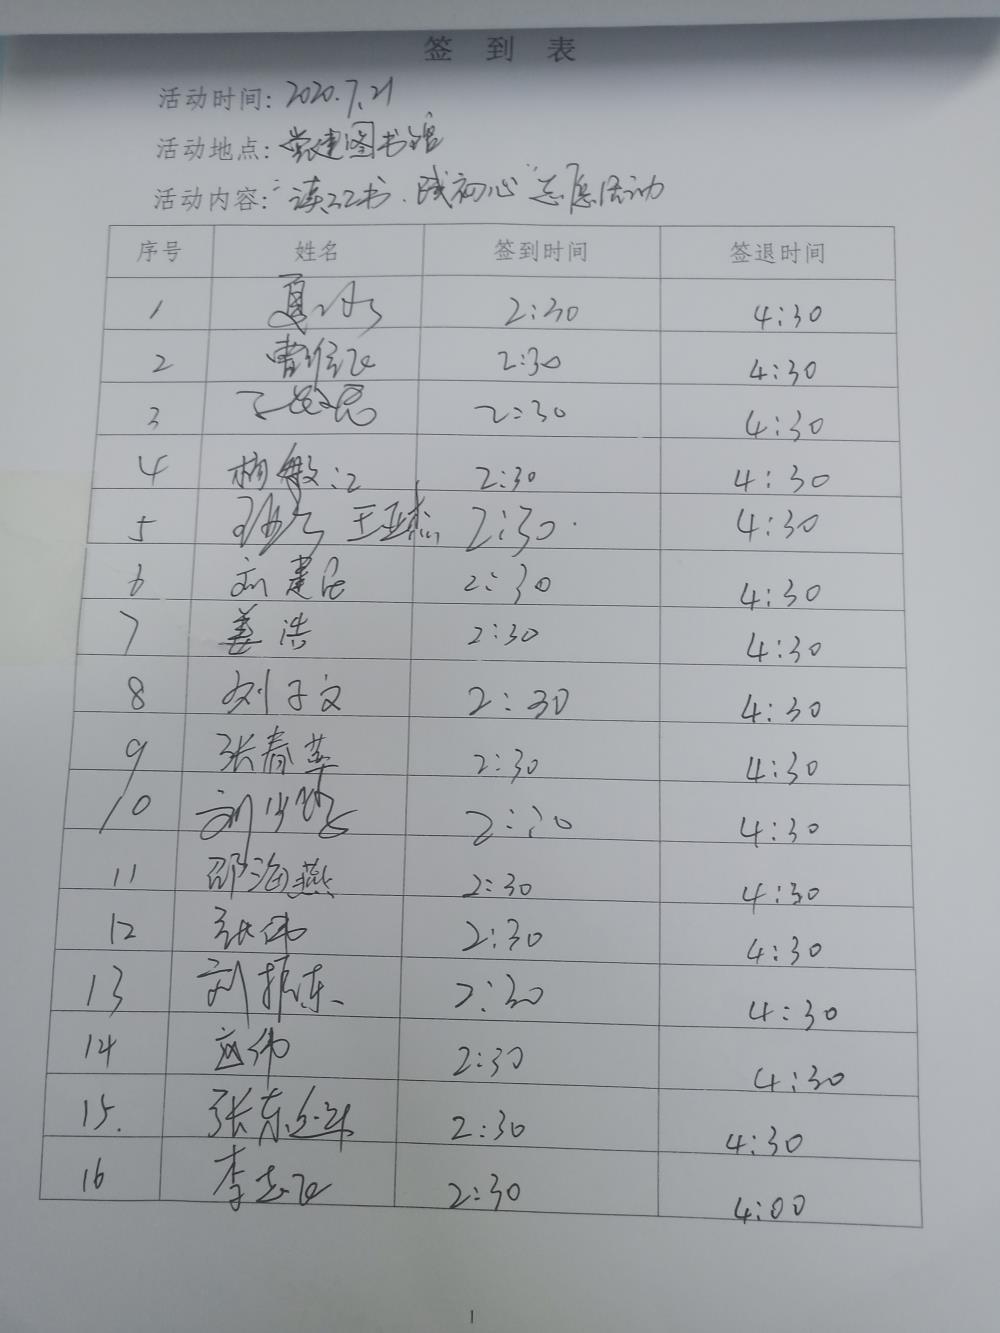 签 到 表
活动时间: 2020.7.21
活动地点: 党建图书馆
活动内容: “读红书、践初心”志愿活动
序号 姓名 签到时间 签退时间
1 2:30 4:30
2 曹维飞 2:30 4:30
3 2:30 4:30
4 杨敏 2:30 4:30
5 王亚杰 2:30 4:30
6 刘建民 2:30 4:30
7 姜浩 2:30 4:30
8 刘子文 2:30 4:30
9 张春苹 2:30 4:30
10 刘 2:30 4:30
11 邵海燕 2:30 4:30
12 张伟 2:30 4:30
13 刘振东 2:30 4:30
14 赵伟 2:30 4:30
15. 张东 2:30 4:30
16 李志飞 2:30 4:00
1